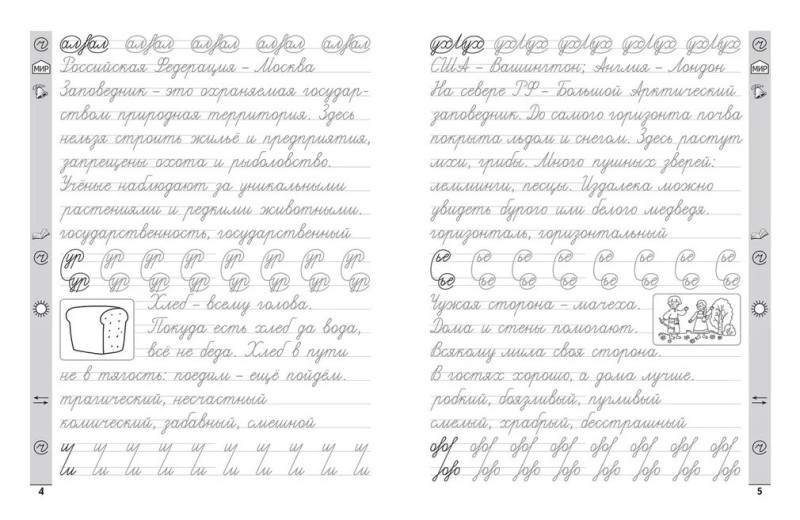 ал ал ал ал ал ал ал ал ал ал
Российская Федерация – Москва
МИР
Заповедник – это охраняемая государ-
ством природная территория. Здесь
нельзя строить жильё и предприятия,
запрещены охота и рыболовство.
Учёные наблюдают за уникальными
растениями и редкими животными.
государственность, государственный
ур ур ур ур ур ур ур ур
ур ур ур ур ур ур ур ур
Хлеб – всему голова.
Покуда есть хлеб да вода,
всё не беда. Хлеб в пути
не в тягость: поедим – ещё пойдём.
трагический, несчастный
комический, забавный, смешной
4
ух ух ух ух ух ух ух ух ух ух
США – Вашингтон; Англия – Лондон
МИР
На севере РФ – Большой Арктический
заповедник. До самого горизонта почва
покрыта льдом и снегом. Здесь растут
мхи, грибы. Много пушных зверей:
лемминги, песцы. Издалека можно
увидеть бурого или белого медведя.
горизонталь, горизонтальный
ье ье ье ье ье ье ье ье
ье ье ье ье ье ье ье ье
Чужая сторона – мачеха.
Дома и стены помогают.
Всякому мила своя сторона.
В гостях хорошо, а дома лучше.
робкий, боязливый, пугливый
смелый, храбрый, бесстрашный
5